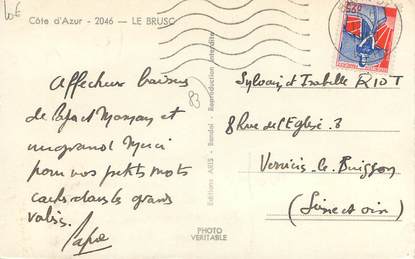 10€
Côte d'Azur - 2046 - LE BRUSC
Affectueux baisers
de Papa et Maman et
un grand Merci
pour vos petits mots
cachés dans la grande
valise.
Papa
83
Editions ARIS - Bandol - Reproduction interdite
PHOTO
VERITABLE
Sylvain et Isabelle RIOT
8 Rue de l'Eglise 3
le Buisson
(Seine et Oise)